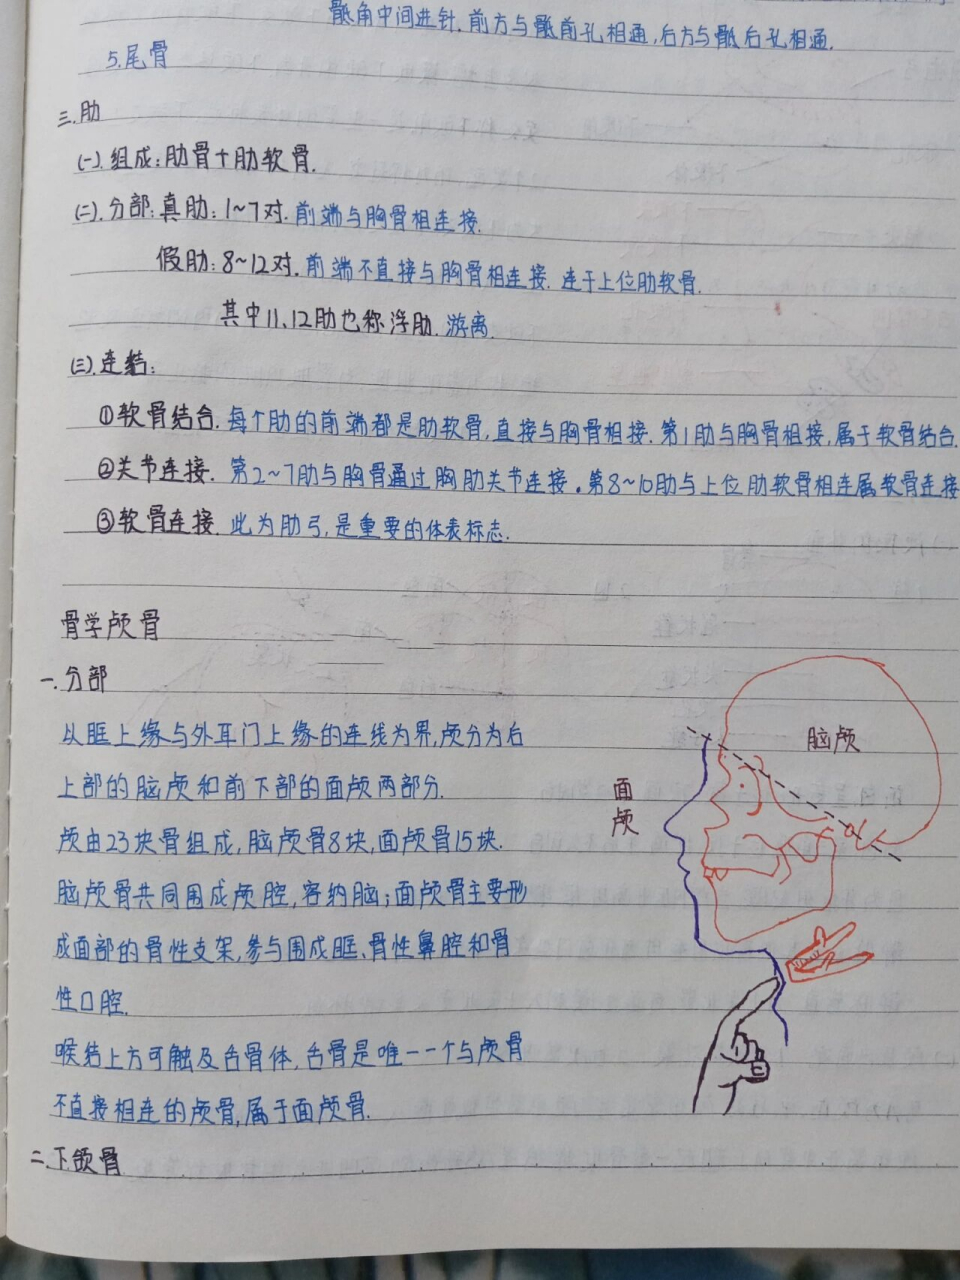 骶角中间进针.前方与骶前孔相通,后方与骶后孔相通.
5.尾骨
三.肋
(一).组成:肋骨+肋软骨.
(二).分部:真肋:1~7对.前端与胸骨相连接.
假肋:8~12对.前端不直接与胸骨相连接.连于上位肋软骨.
其中11、12肋也称浮肋.游离.
(三).连结:
①软骨结合.每个肋的前端都是肋软骨,直接与胸骨相接.第1肋与胸骨相接,属于软骨结合.
②关节连接.第2~7肋与胸骨通过胸肋关节连接.第8~10肋与上位肋软骨相连属软骨连接
③软骨连接.此为肋弓,是重要的体表标志.
骨学颅骨
一.分部
以眶上缘与外耳门上缘的连线为界,颅分为后
上部的脑颅和前下部的面颅两部分.
颅由23块骨组成,脑颅骨8块,面颅骨15块.
脑颅骨共同围成颅腔,容纳脑;面颅骨主要形
成面部的骨性支架,参与围成眶、骨性鼻腔和骨
性口腔.
喉结上方可触及舌骨体,舌骨是唯一一个与颅骨
不直接相连的颅骨,属于面颅骨.
二.下颌骨
脑颅
面颅